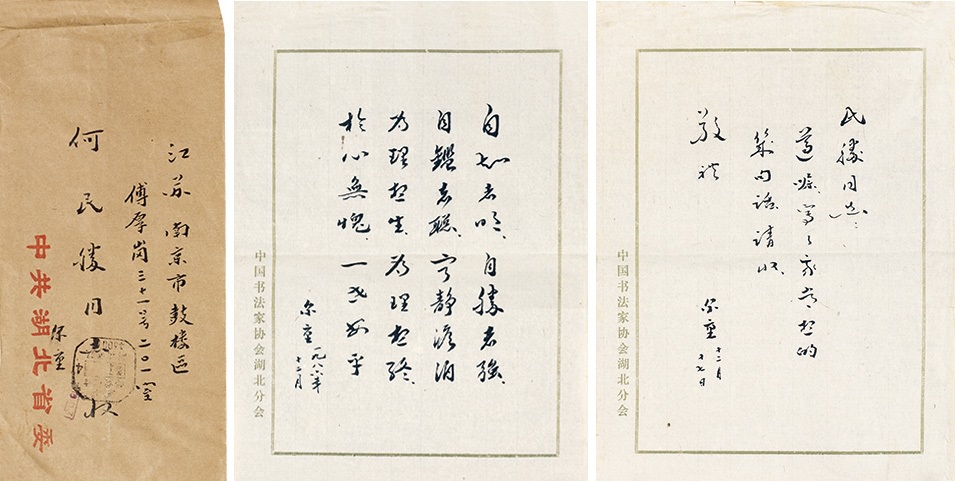 江苏南京市鼓楼区
傅厚岗三十一号二〇一室
何民勝同志收
尔重
中共湖北省委
自知者明、自勝者強、
自鑑者聪、宁静澹泊
为理想生、为理想终、
於心無愧、一世和平
尔重
一九八六年
十二月
中国书法家协会湖北分会
民勝同志：
遵嘱写了我常想的
几句话请收
敬礼
尔重
十二月
十七日
中国书法家协会湖北分会